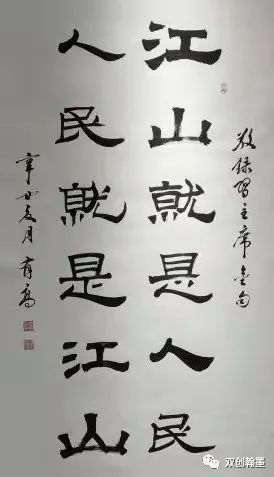 敬录习主席金句
江山就是人民
人民就是江山
辛丑夏月 有亮
双创翰墨